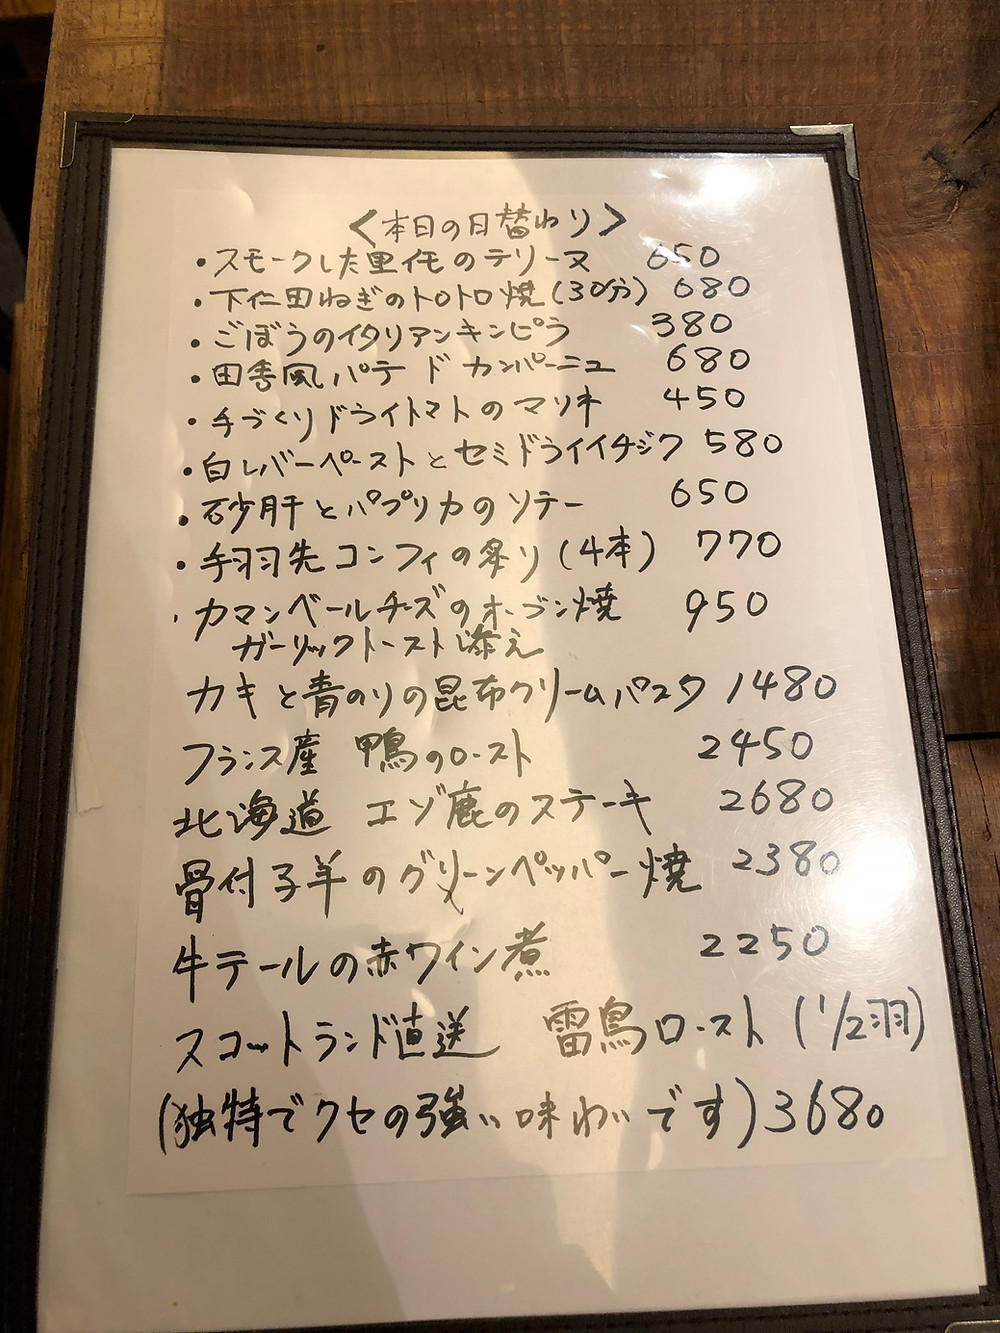 <本日の日替わり>
・スモークした里芋のテリーヌ 650
・下仁田ねぎのトロトロ焼(30分) 680
・ごぼうのイタリアンキンピラ 380
・田舎風パテ ド カンパーニュ 680
・手づくりドライトマトのマリネ 450
・白レバーペーストとセミドライイチジク 580
・砂肝とパプリカのソテー 650
・手羽先コンフィの炙り(4本) 770
・カマンベールチーズのオーブン焼 950
ガーリックトースト添え
カキと青のりの昆布クリームパスタ 1480
フランス産 鴨のロースト 2450
北海道 エゾ鹿のステーキ 2680
骨付子羊のグリーンペッパー焼 2380
牛テールの赤ワイン煮 2250
スコットランド直送 雷鳥ロースト(1/2羽)
(独特でクセの強い味わいです)3680